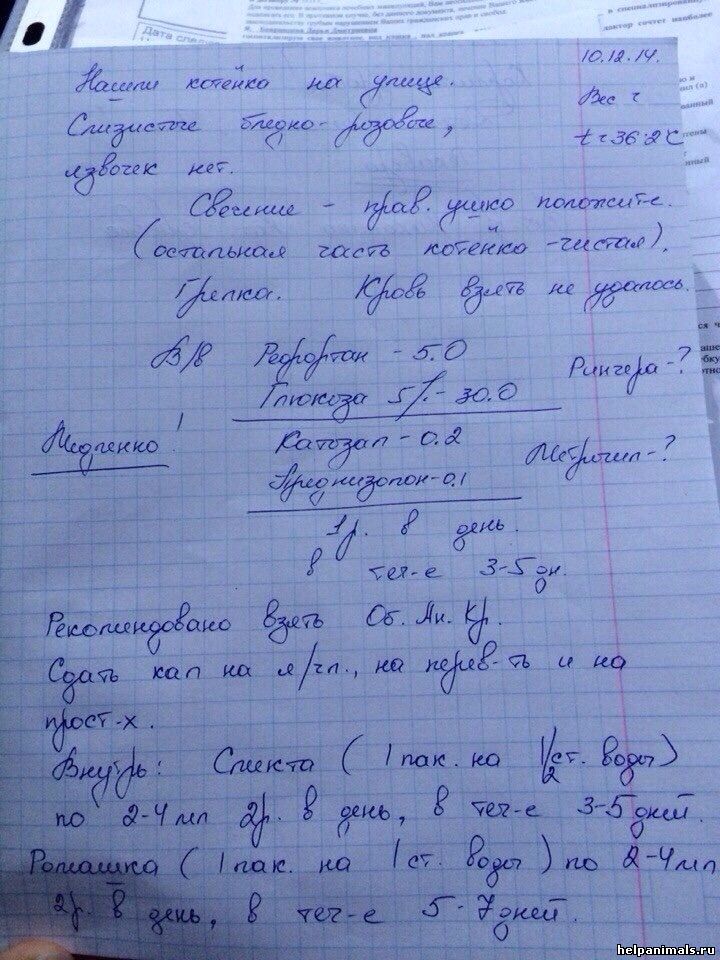 10.12.14.
Нашли котёнка на улице.
Вес г
Слизистые бледно-розовые,
t = 36.2 С
язвочек нет.
Свечение - прав. ушко положит-е.
(остальная часть котёнка - чистая).
Грелка. Кровь взять не удалось.
В/в Рефортан - 5.0
Рингера - ?
Глюкоза 5% - 30.0
Медленно!
Катозал - 0.2
Метрогил - ?
Преднизолон - 0.1
1 р. в день.
в теч-е 3-5 дн.
Рекомендовано взять Об. Ан. Кр.
Сдать кал на я/гл., на перев-ть и на
прост-х.
Внутрь: Смекта (1 пак. на 1/2 ст. воды)
по 2-4 мл 2 р. в день, в теч-е 3-5 дней.
Ромашка (1 пак. на 1 ст. воды) по 2-4 мл
2 р. в день, в теч-е 5-7 дней.
helpanimals.ru